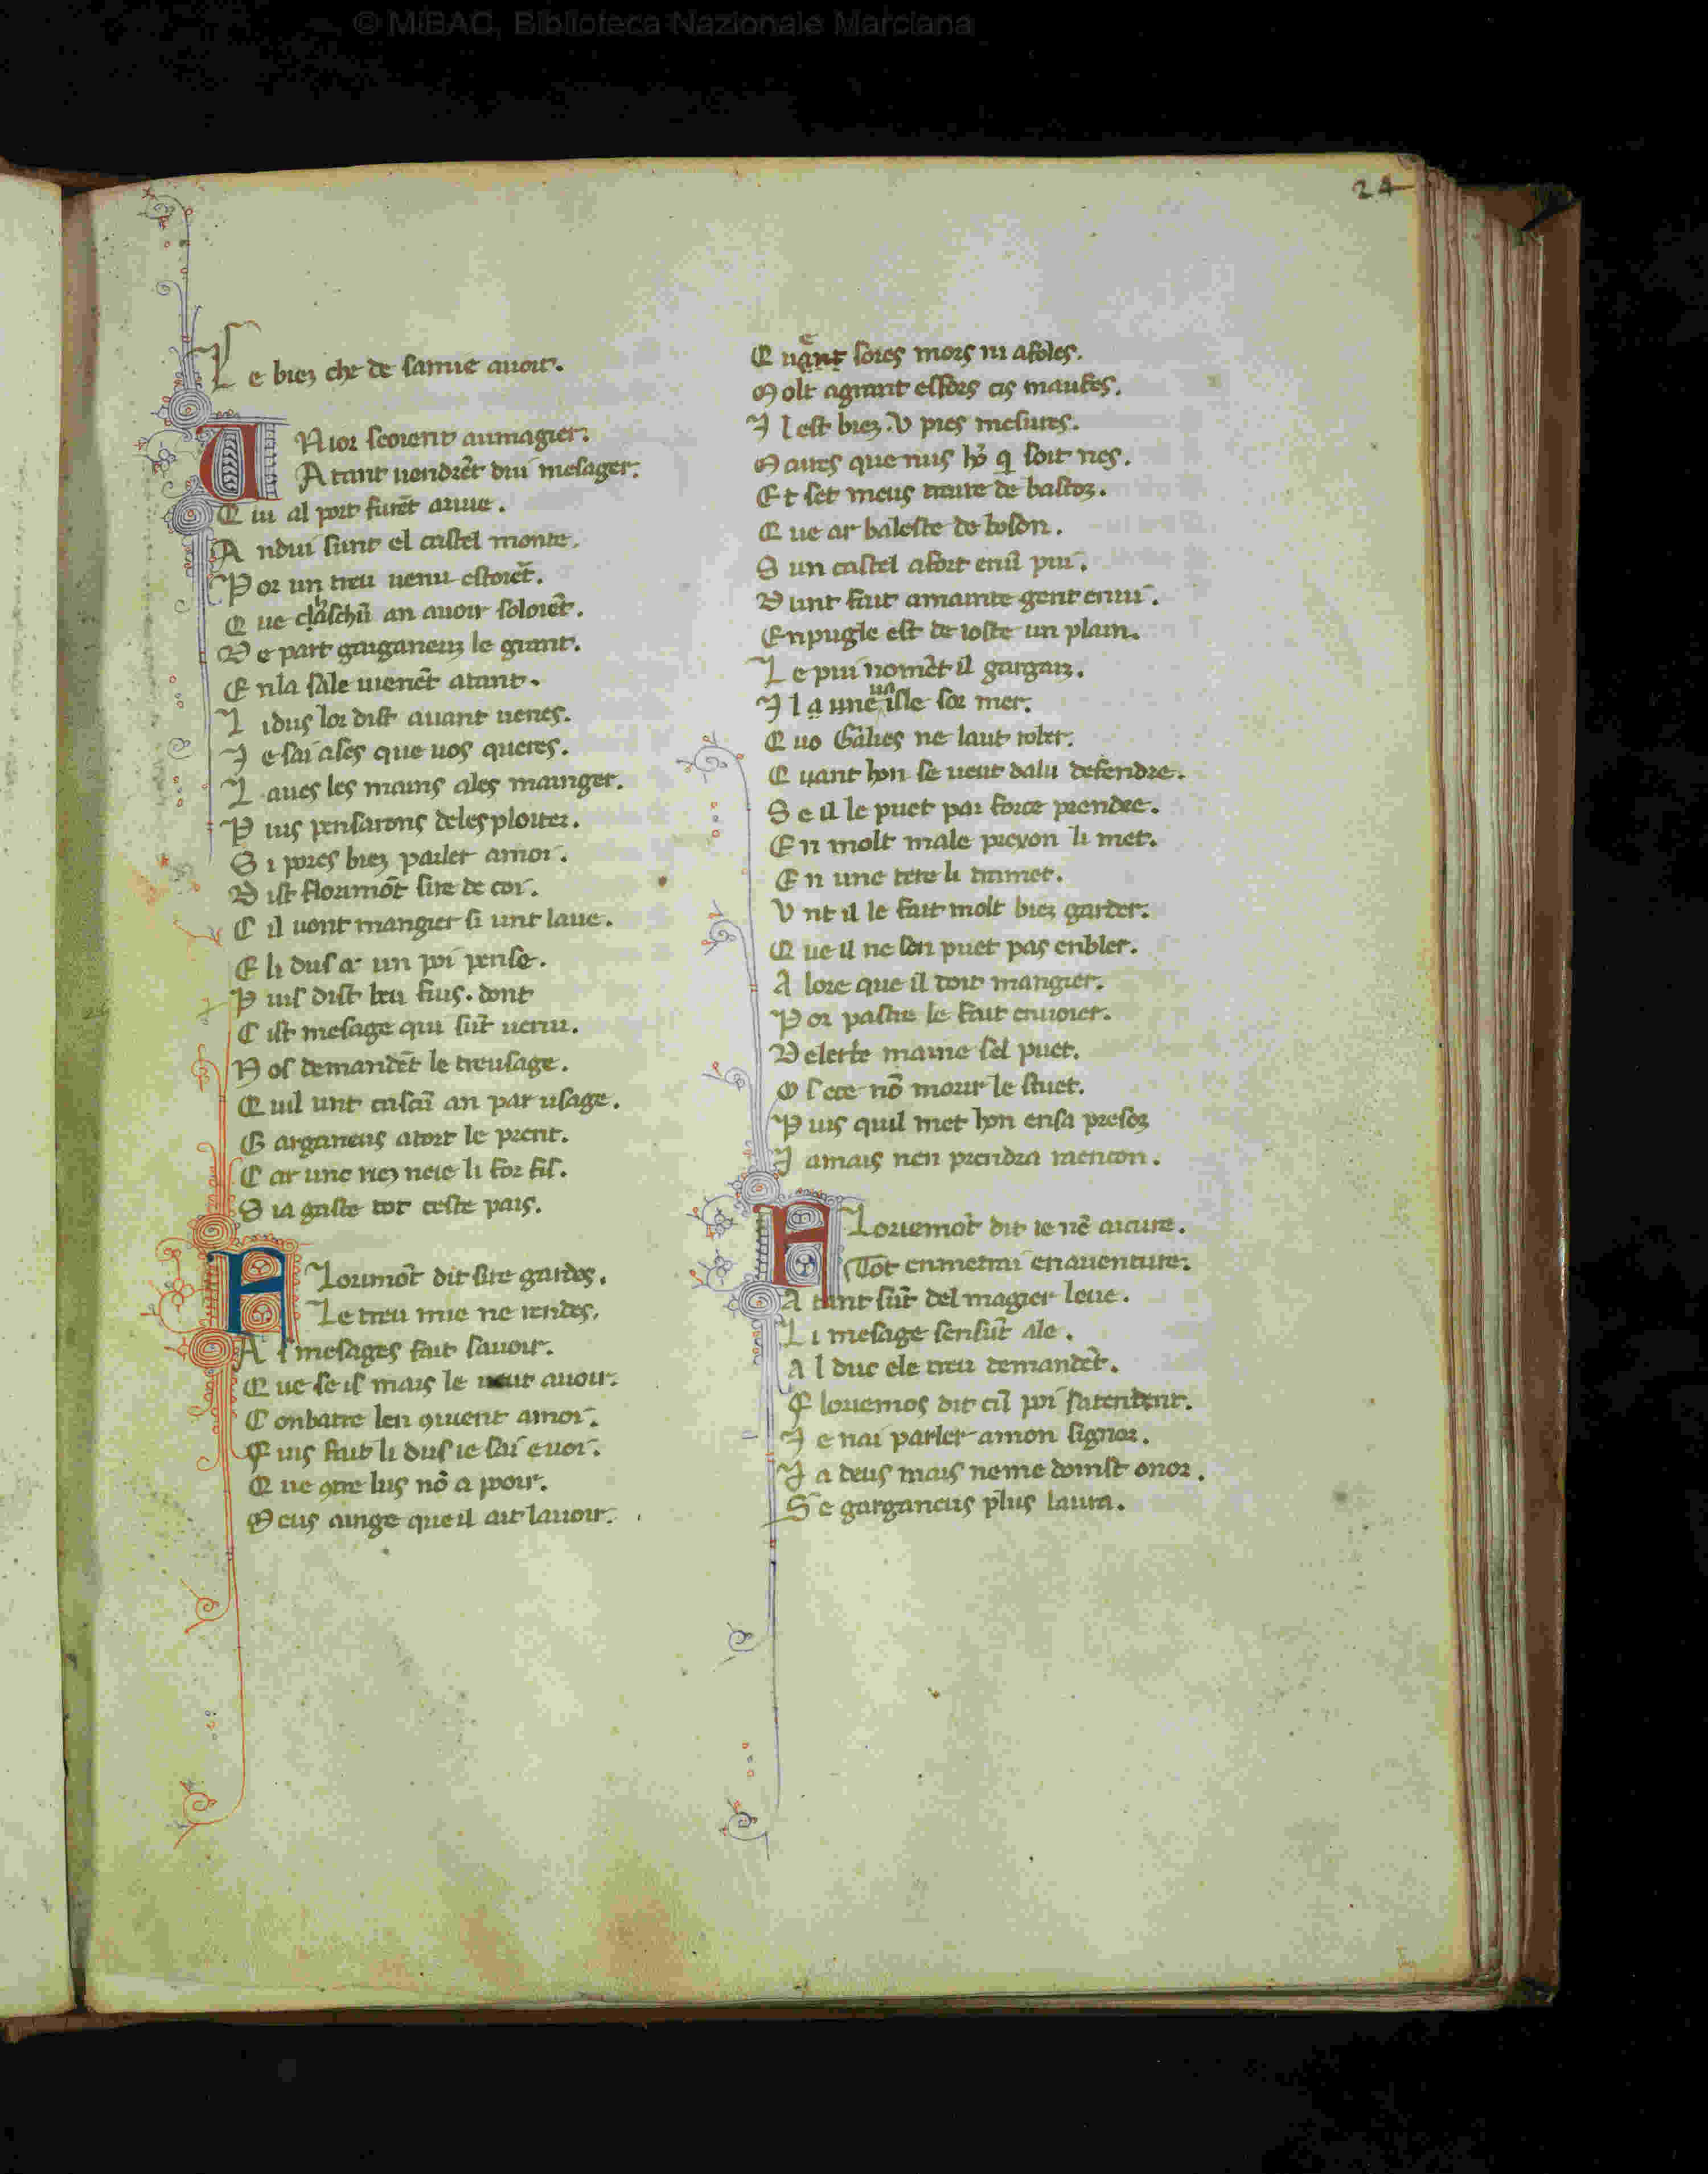 © MiBAC, Biblioteca Nazionale Marciana
24
L e biez che de samie auoir.
U Nior seoient aumagier.
A tant uendrēt dui mesager.
Q ui al port furēt ariue.
A ndui sunt el castel monte.
P or un treu uenu estoiēt.
Q ue chaschū an auoir soloiēt.
D e part garganeus le giant.
E nla sale uienēt atant.
L idus lor dist auant uenes.
J e sai ases que uos queres.
L aues les mains ales mainger.
P uis pensarons deles ploiter.
S i pores biez parler amoi.
D ist florimōt sire de coi.
C il uont mangier si unt laue.
E li dus a un poi pense.
P uis dist beu fiuis. dont
C ist mesage qui sūt uenu.
N os demandēt le treusage.
Q uil unt cascū an par usage.
G arganeus atort le prent.
C ar une niez neie li for fis.
S ia gaste tot ceste pais.
F Lorimōt dit sire gardes.
Le treu mie ne rendes.
A s mesages fait sauoir.
Q ue se il mais le ueut auoir.
C onbatre len 9uient amoi.
P uis fait li dus ie sai e uoi.
Q ue 9tre lus nō a poir.
D eus ainge que il ait lauoir.
Q uant sores mors ni afoles.
M olt agrant effors cis maufes.
J l est biez .V. pies mesures.
M aires que nus hō q̄ soit nes.
E t set meus traire de bastoz.
Q ue ar baleste de bosōn.
S un castel afort enū pui.
D unt fait amainte gent enui.
E npugle est de ioste un plain.
L e pui nomēt il gargaiz.
J l a une isle sor mer.
Q uo Galies ne laut rober.
Q uant hon se ueut dalu defendre.
S e il le puet par force prendre.
E n molt male preyon li met.
E n une tere li tramet.
V nt il le fait molt biez garder.
Q ue il ne son puet pas enbler.
A lore que il doit mangier.
P or pastre le fait enuoier.
D elerbe maine sel puet.
O l ece nō morir le stuet.
P uis quil met hon ensa presoz
J amais nen prendra raencon.
F Loruemōt dit ie nē aicure.
Tot enmetrai enauenture.
A tant sūt del magier leue.
L i mesage sensūt ale.
A l duc ele treu demandēt.
F louemos dit cil poi satendent.
J e uai parler amon signor.
J a deus mais neme domst onor.
S e garganeus plus laura.